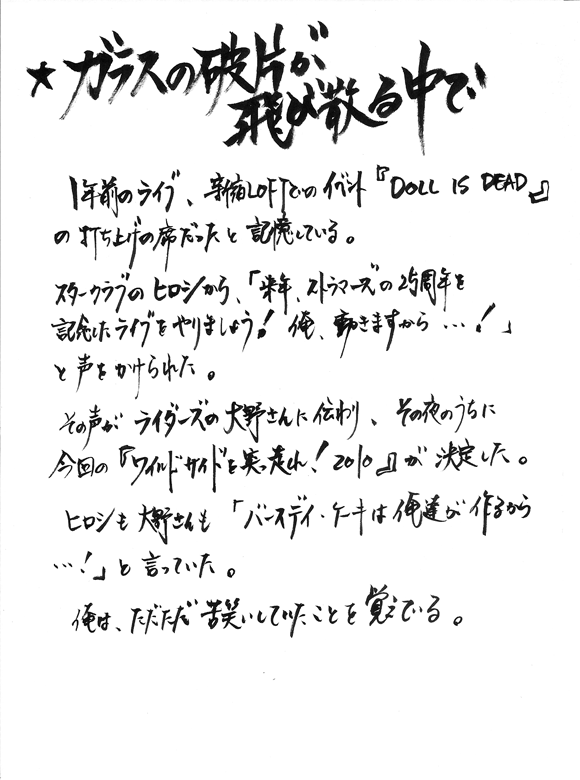 ★ガラスの破片が
飛び散る中で
1年前のライブ、新宿LOFTでのイベント『DOLL IS DEAD』
の打ち上げの席だったと記憶している。
スタークラブのヒロシから、「来年、ストラマーズの25周年を
記念したライブをやりましょう！俺、動きますから…！」
と声をかけられた。
その声がライダーズの大野さんに伝わり、その夜のうちに
今回の『ワイルドサイドを突っ走れ！2010』が決定した。
ヒロシも大野さんも「バースデイ・ケーキは俺達が作るから
…！」と言っていた。
俺は、ただただ苦笑いしていたことを覚えている。